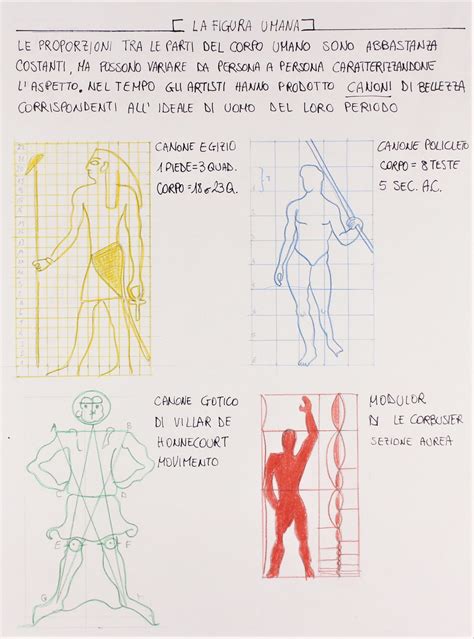 LA FIGURA UMANA
LE PROPORZIONI TRA LE PARTI DEL CORPO UMANO SONO ABBASTANZA
COSTANTI, MA POSSONO VARIARE DA PERSONA A PERSONA CARATTERIZZANDONE
L'ASPETTO. NEL TEMPO GLI ARTISTI HANNO PRODOTTO CANONI DI BELLEZZA
CORRISPONDENTI ALL'IDEALE DI UOMO DEL LORO PERIODO
CANONE EGIZIO
1 PIEDE = 3 QUAD.
CORPO = 18 o 23 Q.
CANONE POLICLETO
CORPO = 8 TESTE
5 SEC. A.C.
CANONE GOTICO
DI VILLAR DE
HONNECOURT
MOVIMENTO
A B
C D
E F
G H
MODULOR
DI LE CORBUSIER
SEZIONE AUREA